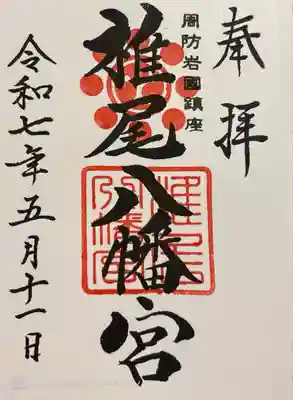 奉拝
周防岩國鎮座
椎尾八幡宮
椎尾八幡宮
令和七年五月十一日